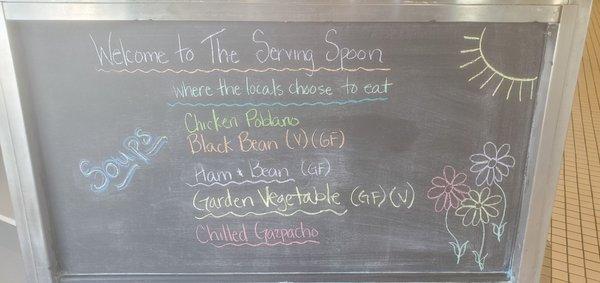 Welcome to The Serving Spoon
where the locals choose to eat
Soups
Chicken Poblano
Black Bean (V) (GF)
Ham & Bean (GF)
Garden Vegetable (GF) (V)
Chilled Gazpacho